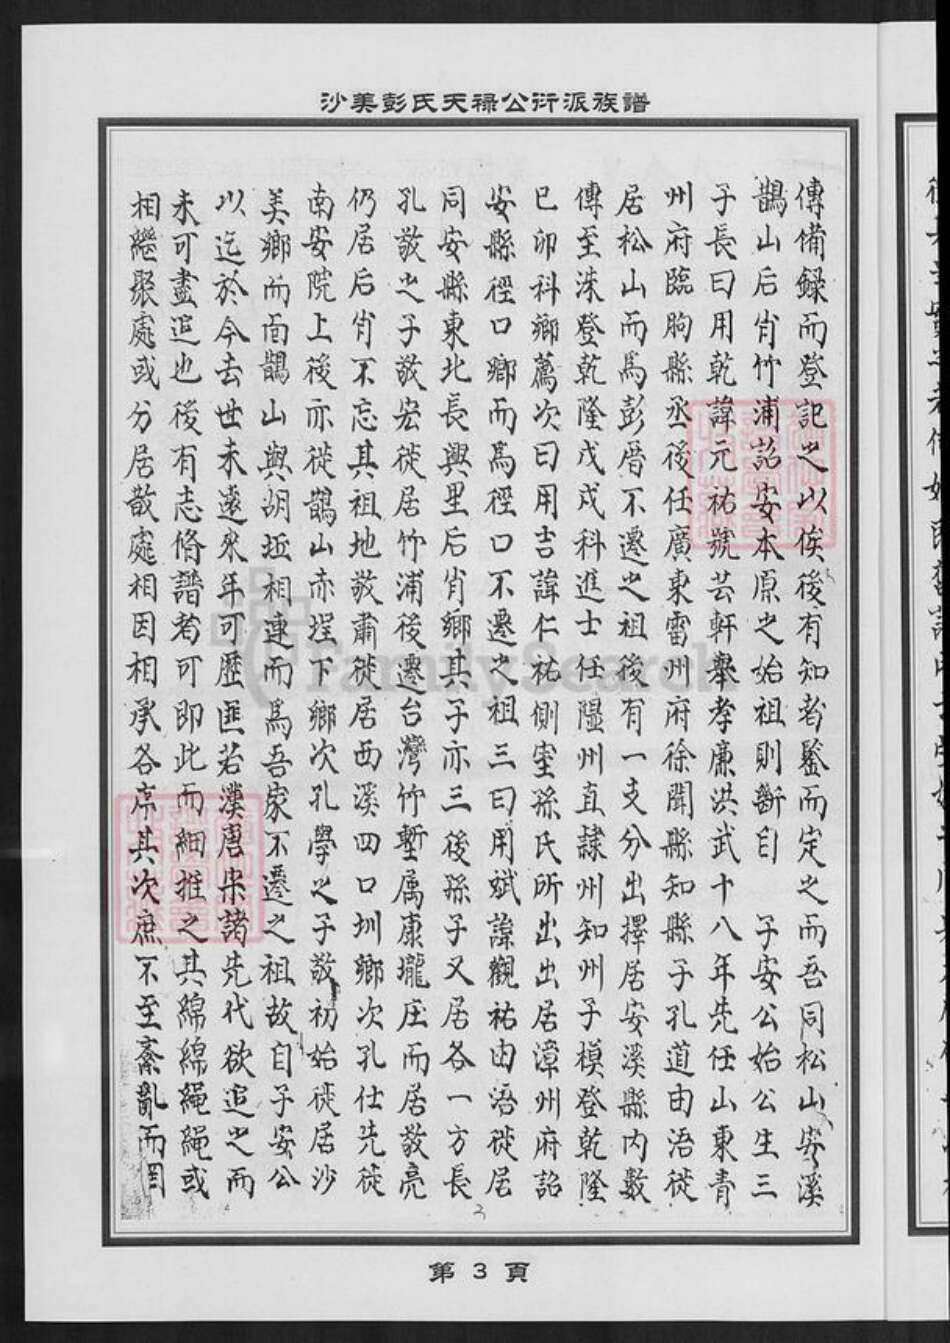 沙美彭氏天祿公衍派族譜
傳備録而登記之以俟後有知者鑒而定之而吾同松山安溪
鵲山后肖竹浦詔安本原之始祖則斷自 子安公始公生三
子長曰用乾諱元祐號芸軒舉孝廉洪武十八年先任山東青
州府臨朐縣丞後任廣東雷州府徐聞縣知縣子孔道由浯徙
居松山而爲彭厝不遷之祖後有一支分出擇居安溪縣内數
傳至洙登乾隆戊戌科進士任隰州直隸州知州子模登乾隆
已卯科鄉薦次曰用吉諱仁祐側室孫氏所出出居漳州府詔
安縣徑口鄉而爲徑口不遷之祖三曰用斌諱觀祐由浯徙居
同安縣東北長興里后肖鄉其子亦三後孫子又居各一方長
孔敬之子敬宏徙居竹浦後遷台灣竹塹属康壠庄而居敬亮
仍居后肖不忘其祖地敬肅徙居西溪四口圳鄉次孔仕先徙
南安院上後亦徙鵲山赤埕下鄉次孔學之子敬初始徙居沙
美鄉而面鵲山與胡坵相連而爲吾家不遷之祖故自子安公
以迄於今去世未遠來年可歷匪若漢唐宋諸先代欲追之而
未可盡追也後有志脩譜者可即此而細推之其綿綿繩繩或
相繼聚處或分居散處相因相承各序其次庶不至紊亂而罔
3
第 3 頁